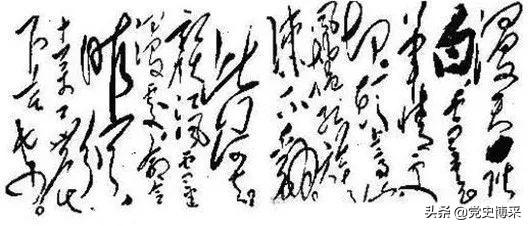 漫天皆
白雪里行
军情更
头上高山
风卷红旗
冻不翻
此行何去
赣江风雪
漫处命令
昨颁
十万工农
下吉安
头条 @党史博采